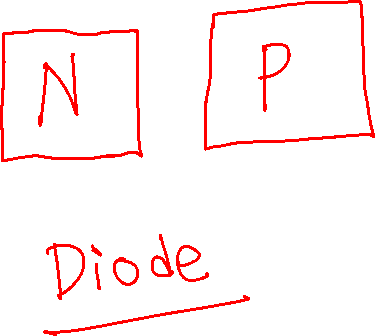 N P
Diode